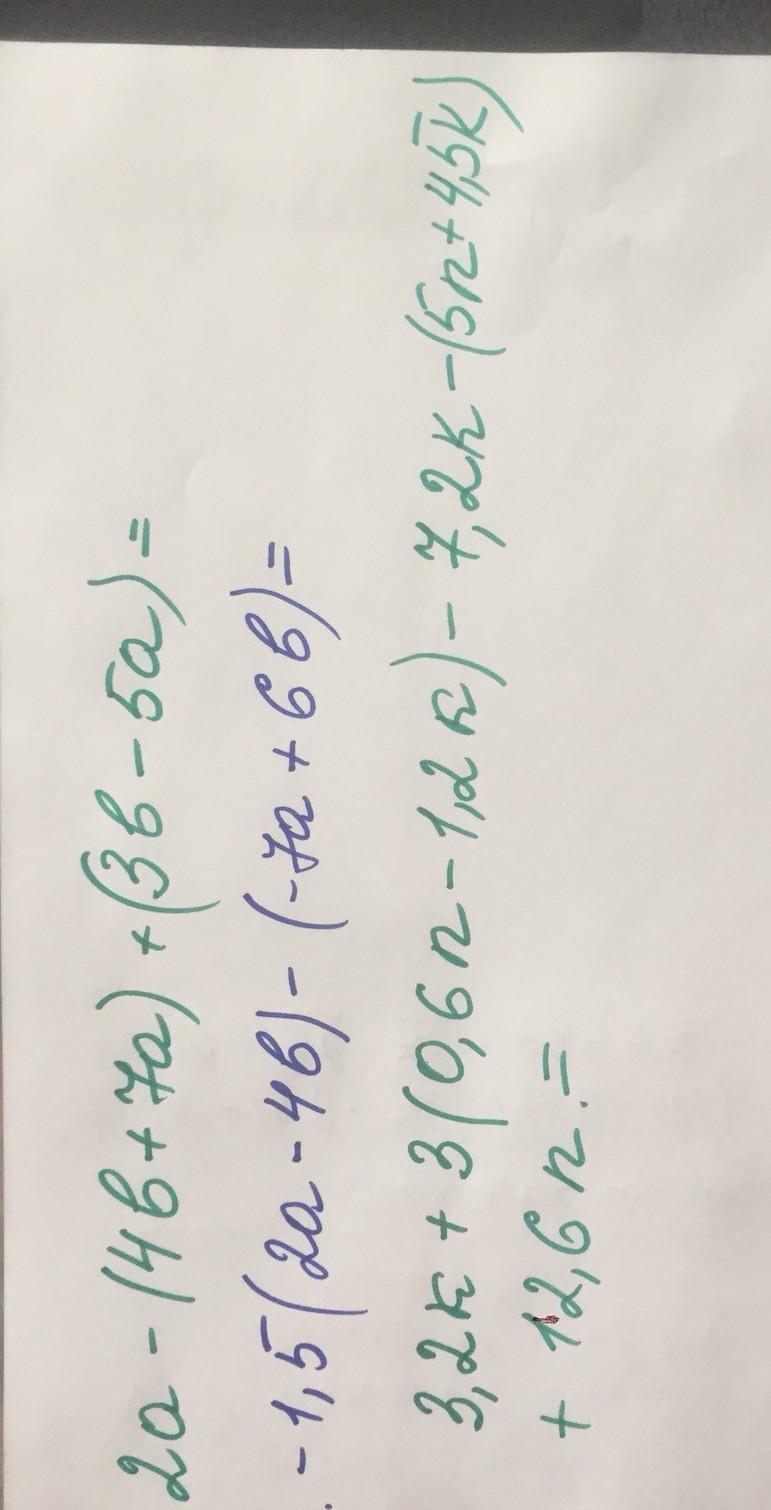 2a - (4в + 7a) + (3в - 5a) =
. -1,5(2a - 4в) - (-7a + 6в) =
3,2к + 3(0,6n - 1,2к) - 7,2к - (5n + 4,5к)
+ 12,6n. =